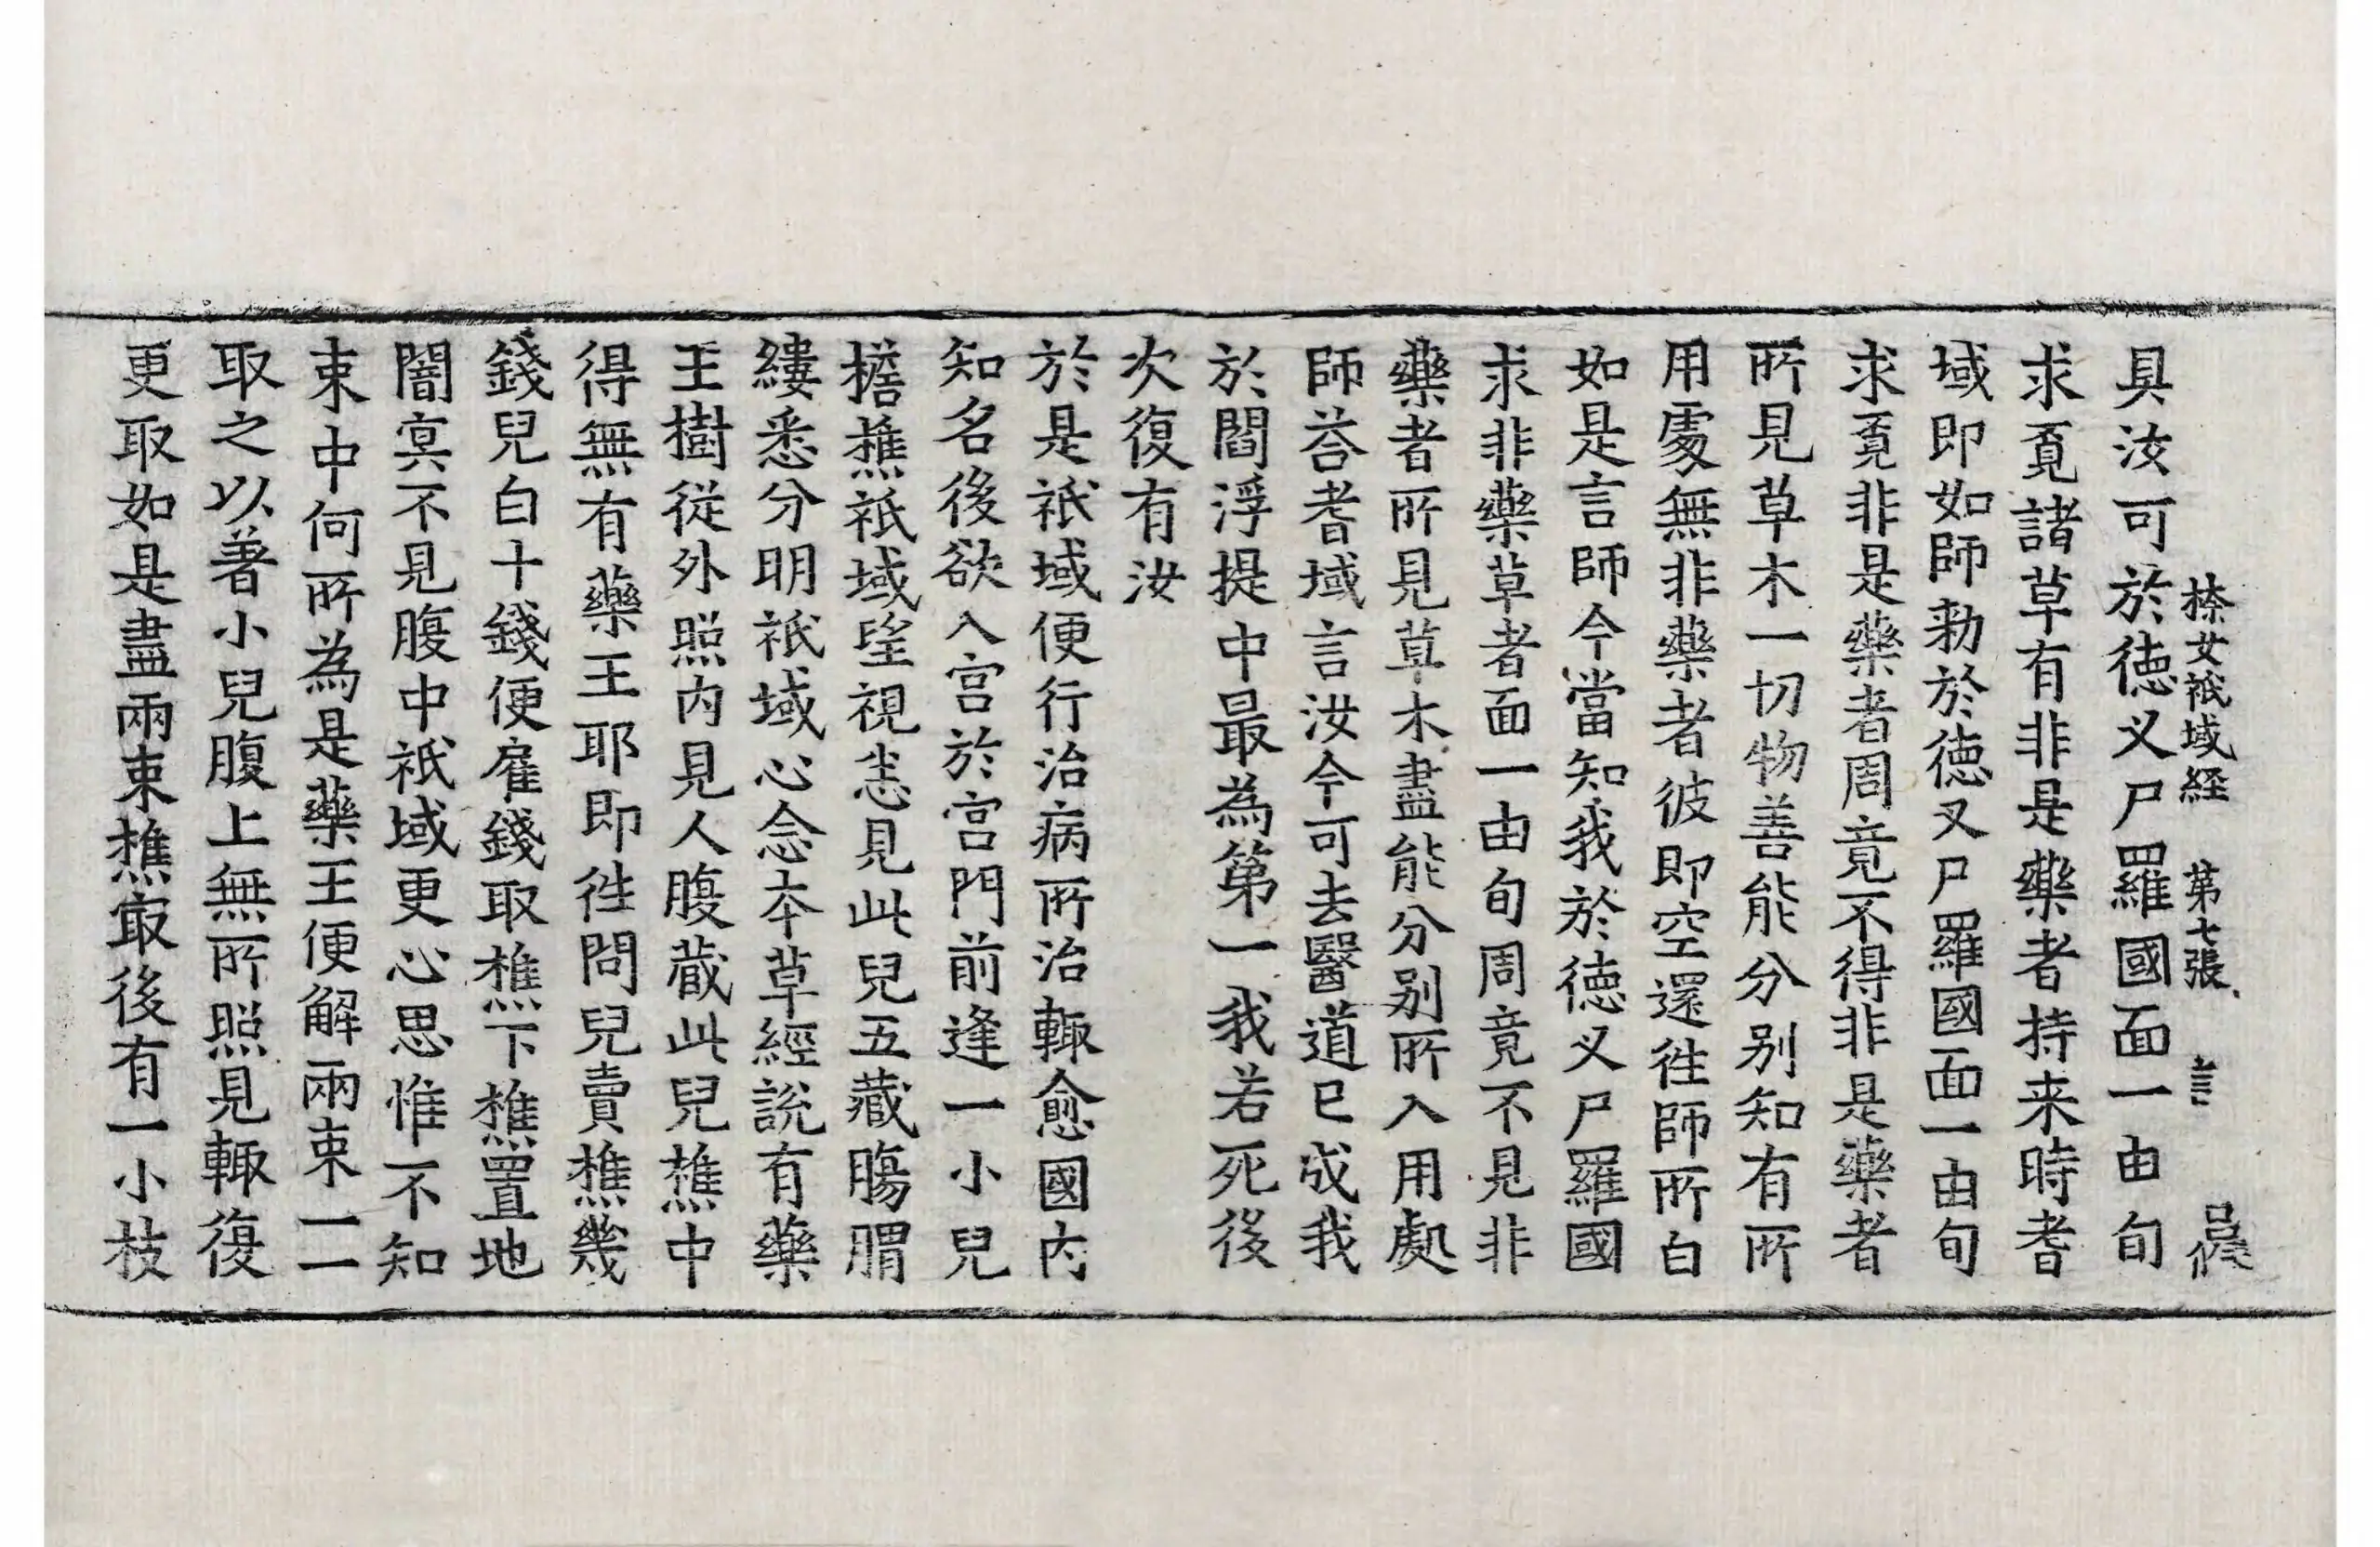 㮈女祇域經 第七張 言
具汝可於德叉尸羅國面一由旬
求覔諸草有非是藥者持来時耆
域即如師勑於德叉尸羅國面一由旬
求覔非是藥者周竟不得非是藥者
所見草木一切物善能分别知有所
用處無非藥者彼即空還徃師所白
如是言師今當知我於德叉尸羅國
求非藥草者面一由旬周竟不見非
藥者所見草木盡能分别所入用處
師荅耆域言汝今可去醫道已成我
於閻浮提中最為第一我若死後
次復有汝
於是祇域便行治病所治輙愈國内
知名後欲入宫於宫門前逢一小兒
擔樵祇域望視悉見此兒五藏膓胃
縷悉分明祇域心念本草經說有藥
王樹從外照内見人腹藏此兒樵中
得無有藥王耶即徃問兒賣樵幾
錢兒白十錢便雇錢取樵下樵置地
闇㝠不見腹中祇域更心思惟不知
束中何所為是藥王便解兩束一一
取之以著小兒腹上無所照見輙復
更取如是盡兩束樵㝡後有一小枝